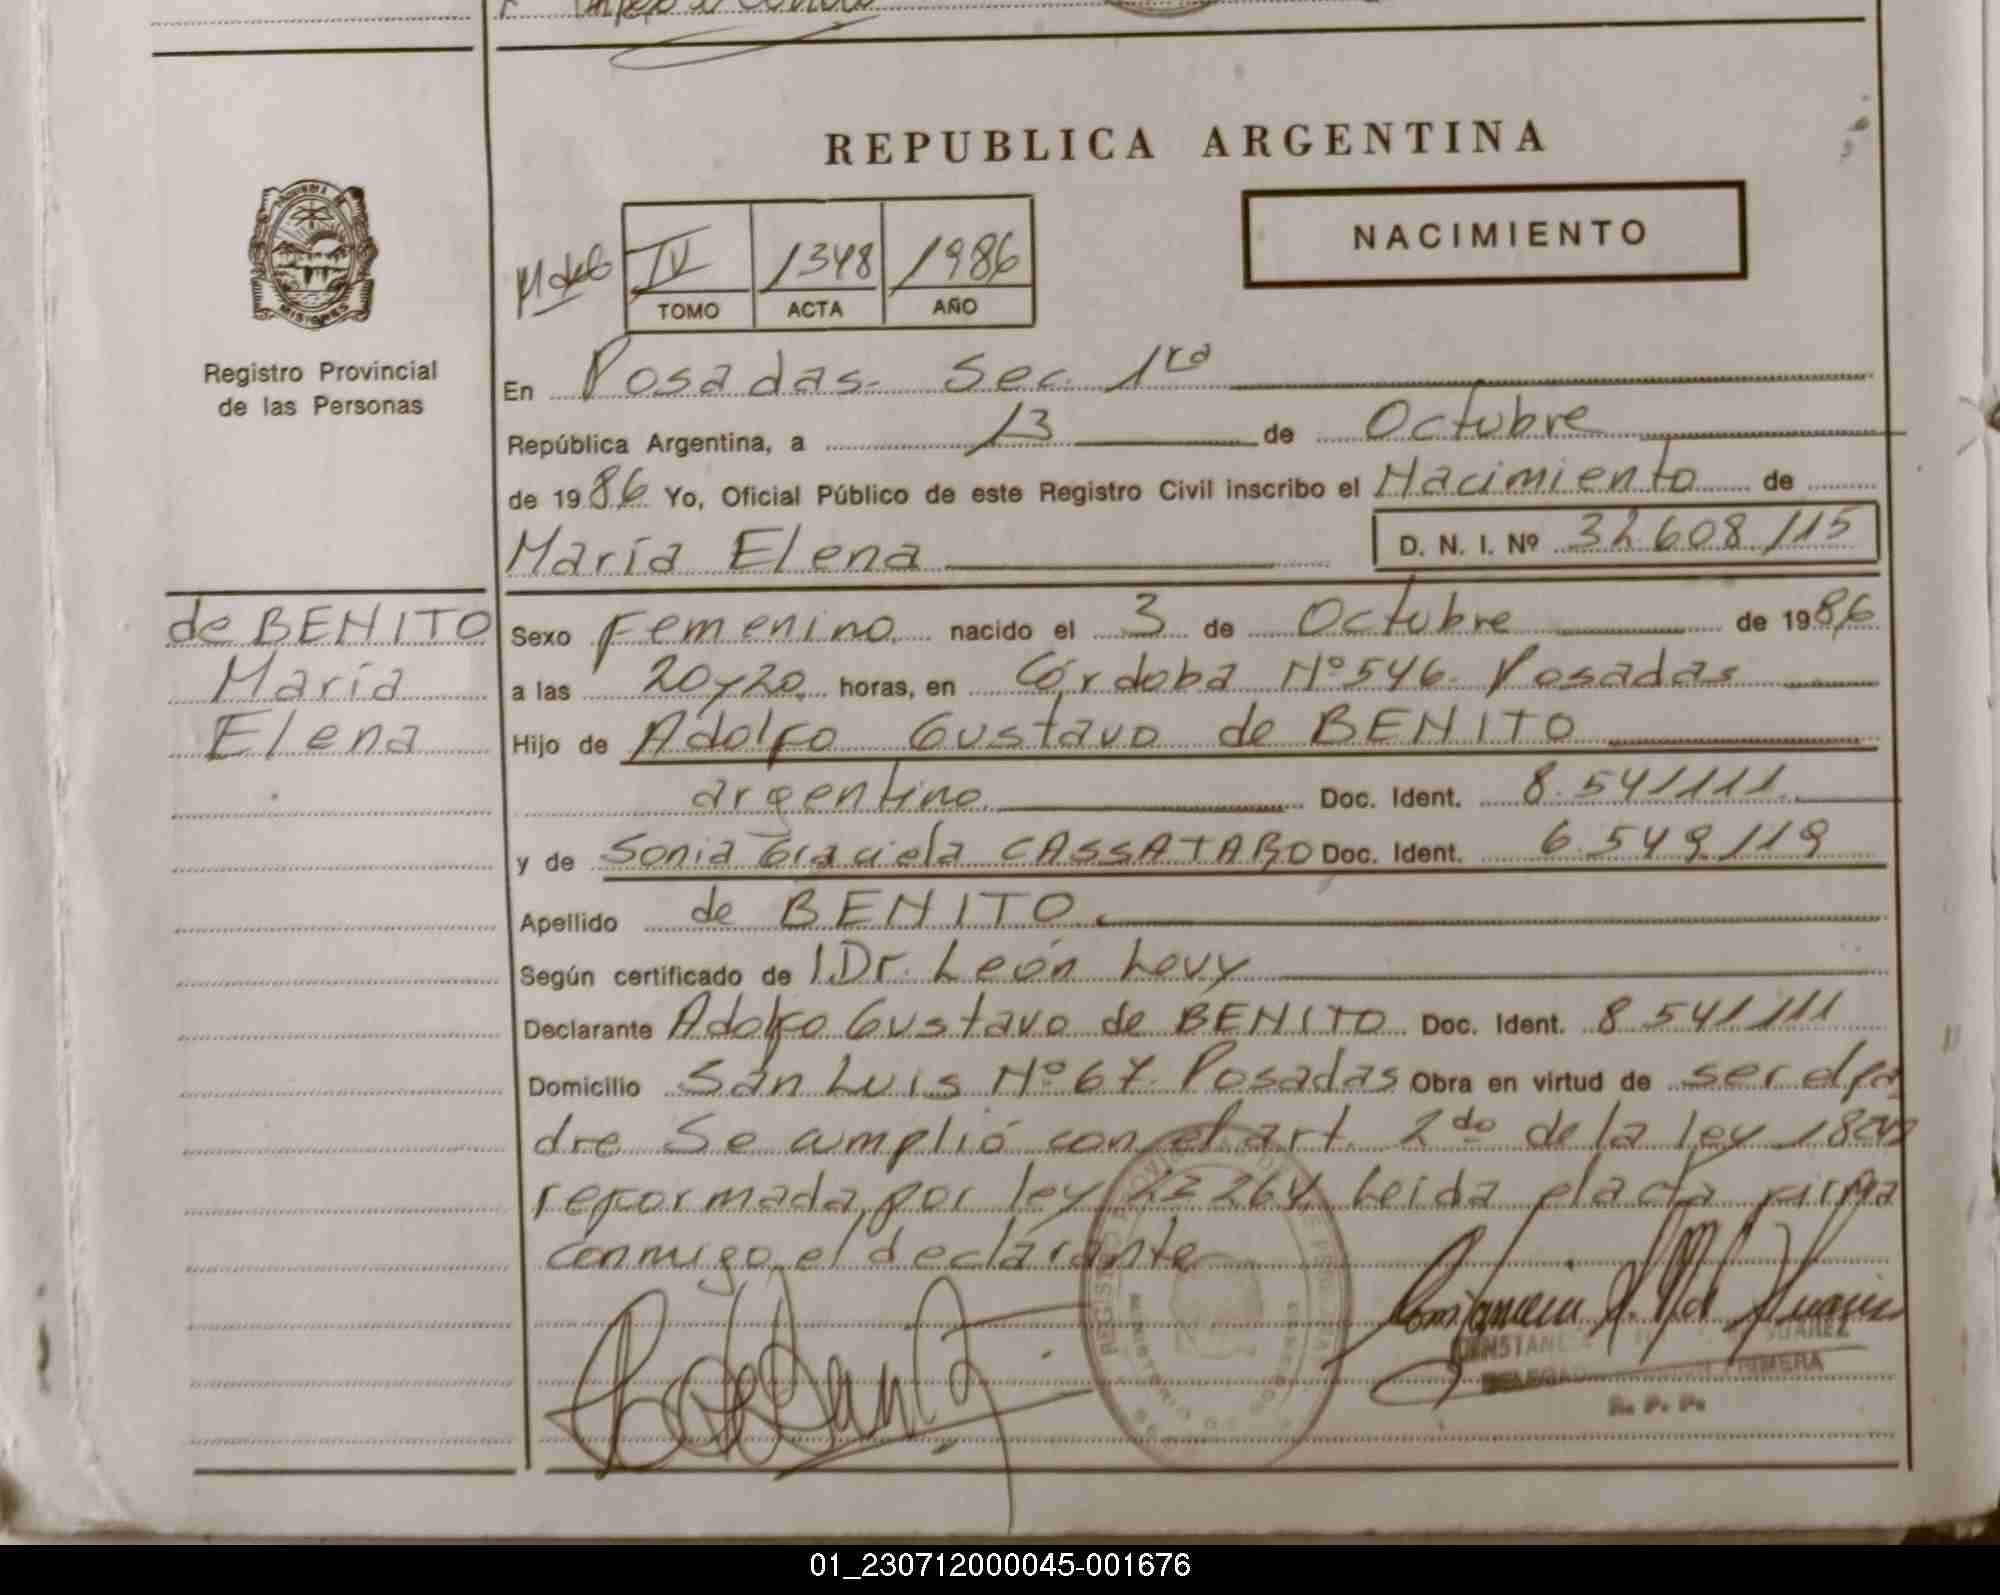 REPUBLICA ARGENTINA
NACIMIENTO
IV 1348 1986
TOMO ACTA AÑO
MISIONES
Registro Provincial
de las Personas
En Posadas. Sec. 1ra
República Argentina, a 13 de Octubre
de 1986 Yo, Oficial Público de este Registro Civil inscribo el Nacimiento de
María Elena D. N. I. Nº 32.608.115
de BENITO
María
Elena
Sexo Femenino nacido el 3 de Octubre de 1986
a las 20 y 20 horas, en Córdoba Nº 546. Posadas
Hijo de Adolfo Gustavo de BENITO
argentino Doc. Ident. 8.541.111
y de Sonia Graciela CASSATARO Doc. Ident. 6.549.119
Apellido de BENITO
Según certificado de Dr. León Levy
Declarante Adolfo Gustavo de BENITO Doc. Ident. 8.541.111
Domicilio San Luis Nº 67 Posadas Obra en virtud de ser el pa
dre Se cumplió con el art. 2do de la ley
reformada por ley 22264 Leida el acta firma
conmigo el declarante
SUAREZ
PRIMERA
R. P. P.
01_230712000045-001676